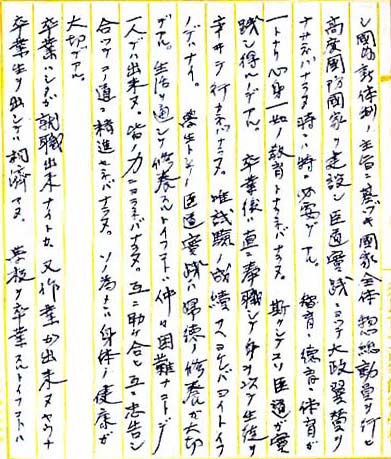 シ國内新体制ノ主旨ニ基ヅキ國家全体ノ總動員ヲ行ヒ
高度國防國家ヲ建設シ臣道實践ニヨッテ大政翼賛ヲ
ナサネバナラヌ時ハ特ニ必要デアル。智育ト德育ト体育ガ
一トナリ心身一如ノ教育トナラネバナラヌ。斯クシテコソ臣道ガ實
践シ得ルノデアル。卒業後ハ直ニ奉職シテ身ヲ以テ生徒ヲ
率ヰテ行カネバナラヌ。唯試驗ノ成績サヘヨケレバヨイトイフ
ノデハナイ。學生トシテノ臣道實践ハ婦德ノ修養ガ大切
デアル。生活ヲ通シテ修養スルトイフコトハ仲々困難ナコトデ
一人デハ出来ヌ。皆ノ力ニヨラネバナラヌ。互ニ助ケ合ヒ互ニ忠告シ
合ッテコノ道ニ精進セネバナラヌ。ソノ為メニハ身体ノ健康ガ
大切デアル
卒業ハシタガ就職出来ナイトカ又作業ガ出来ヌヤウナ
卒業生ヲ出シテハ相濟マヌ。學校ヲ卒業スルトイフコトハ